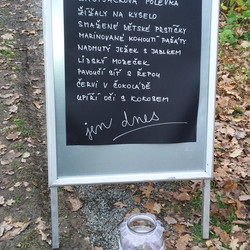 POLÉVKA
ŽÍŽALY NA KYSELO
SMAŽENÉ DĚTSKÉ PRSTÍČKY
MARINOVANÉ KOHOUTÍ PAŘÁTY
NADMUTÝ JEŽEK S JABLKEM
LIDSKÝ MOZEČEK
PAVOUČÍ SÍŤ S ŘEPOU
ČERVI V ČOKOLÁDĚ
UPÍŘÍ OČI S KOKOSEM
jen dnes